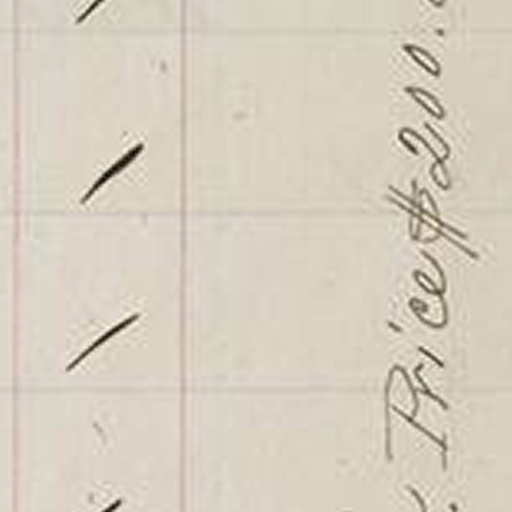 Price $200.